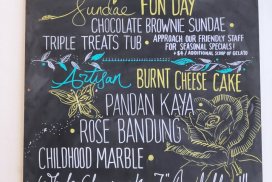 Sundae FUN DAY
CHOCOLATE BROWNIE SUNDAE •
TRIPLE TREATS TUB • APPROACH OUR FRIENDLY STAFF
FOR SEASONAL SPECIALS!
+$4 / ADDITIONAL SCOOP OF GELATO
Artisan BURNT CHEESE CAKE
PANDAN KAYA •
• ROSE BANDUNG
CHILDHOOD MARBLE •